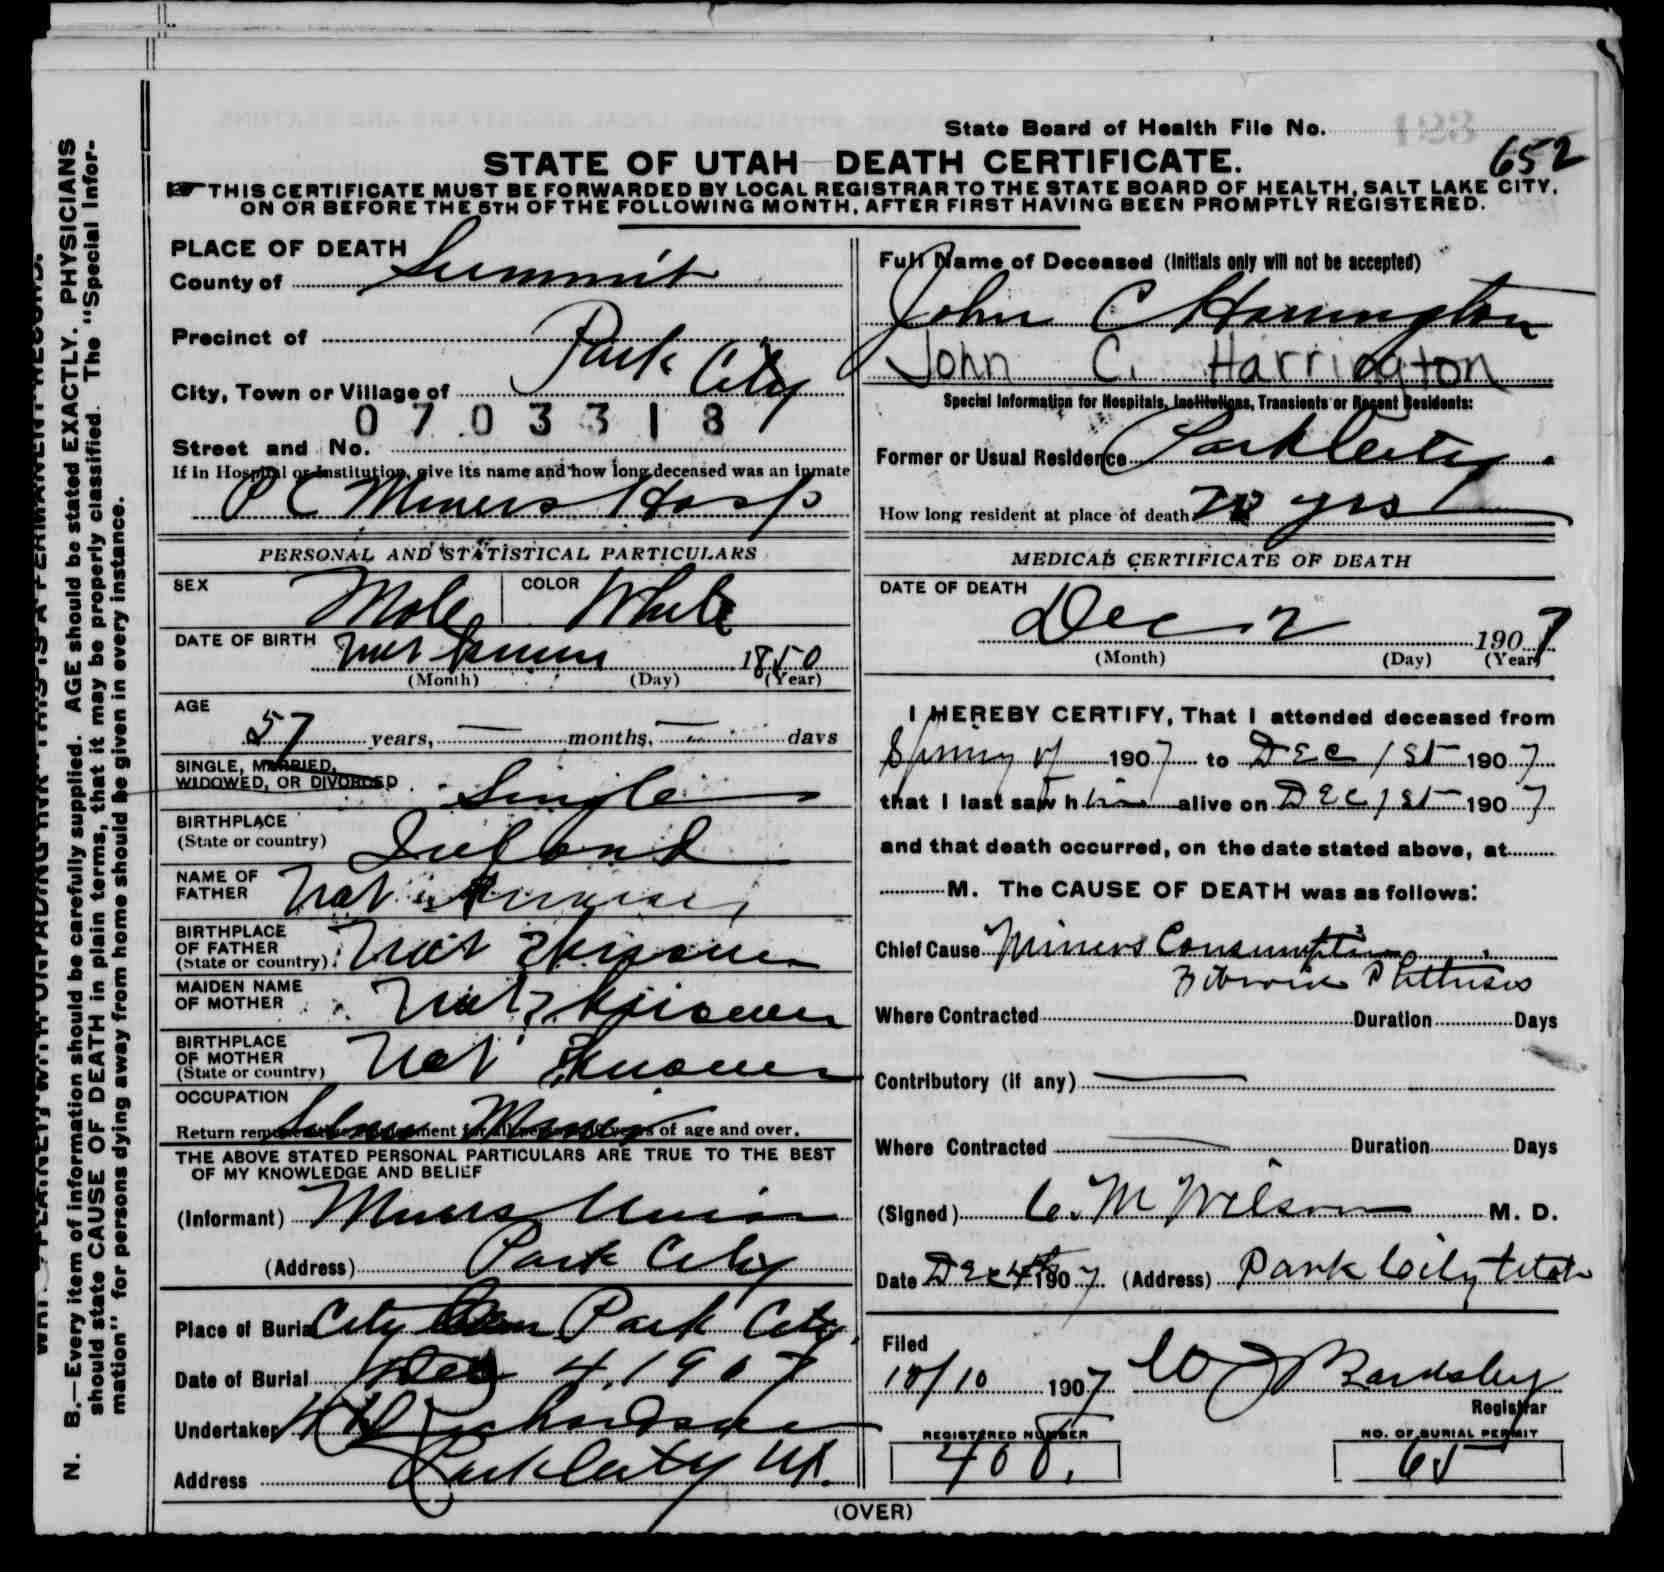 State Board of Health File No.
652
STATE OF UTAH DEATH CERTIFICATE.
THIS CERTIFICATE MUST BE FORWARDED BY LOCAL REGISTRAR TO THE STATE BOARD OF HEALTH, SALT LAKE CITY,
ON OR BEFORE THE 5TH OF THE FOLLOWING MONTH, AFTER FIRST HAVING BEEN PROMPTLY REGISTERED.
PLACE OF DEATH
County of Summit
Precinct of
City, Town or Village of Park City
0703318
Street and No.
If in Hospital or Institution, give its name and how long deceased was an inmate
P C Miners Hosp
PERSONAL AND STATISTICAL PARTICULARS
SEX Male COLOR White
DATE OF BIRTH Not Known 1850
(Month) (Day) (Year)
AGE
57 years, — months, — days
SINGLE, MARRIED,
WIDOWED, OR DIVORCED Single
BIRTHPLACE
(State or country) Ireland
NAME OF
FATHER Not Known
BIRTHPLACE
OF FATHER
(State or country) Not Known
MAIDEN NAME
OF MOTHER Not Known
BIRTHPLACE
OF MOTHER
(State or country) Not Known
OCCUPATION
Miner
Return remunerative employment for all persons 10 years of age and over.
THE ABOVE STATED PERSONAL PARTICULARS ARE TRUE TO THE BEST
OF MY KNOWLEDGE AND BELIEF
(Informant) Miners Union
(Address) Park City
Place of Burial City Cem Park City
Date of Burial Dec 4, 1907
Undertaker Richardson
Address Park City Ut.
Full Name of Deceased (Initials only will not be accepted)
John C Harrington
John C. Harrington
Special Information for Hospitals, Institutions, Transients or Recent Residents:
Former or Usual Residence Park City
How long resident at place of death 20 yrs
MEDICAL CERTIFICATE OF DEATH
DATE OF DEATH
Dec 2 1907
(Month) (Day) (Year)
I HEREBY CERTIFY, That I attended deceased from
Spring of 1907 to Dec 1st 1907
that I last saw him alive on Dec 1st 1907
and that death occurred, on the date stated above, at
M. The CAUSE OF DEATH was as follows:
Chief Cause Miners Consumption
Fibroid Phthisis
Where Contracted Duration Days
Contributory (if any) —
Where Contracted — Duration Days
(Signed) C. M Wilson M. D.
Date Dec 4th 1907 (Address) Park City Utah
Filed
12/10 1907 W J Bardsley
Registrar
REGISTERED NUMBER
400.
NO. OF BURIAL PERMIT
65
(OVER)
N. B.—Every item of information should be carefully supplied. AGE should be stated EXACTLY. PHYSICIANS
should state CAUSE OF DEATH in plain terms, that it may be properly classified. The "Special Infor-
mation" for persons dying away from home should be given in every instance.